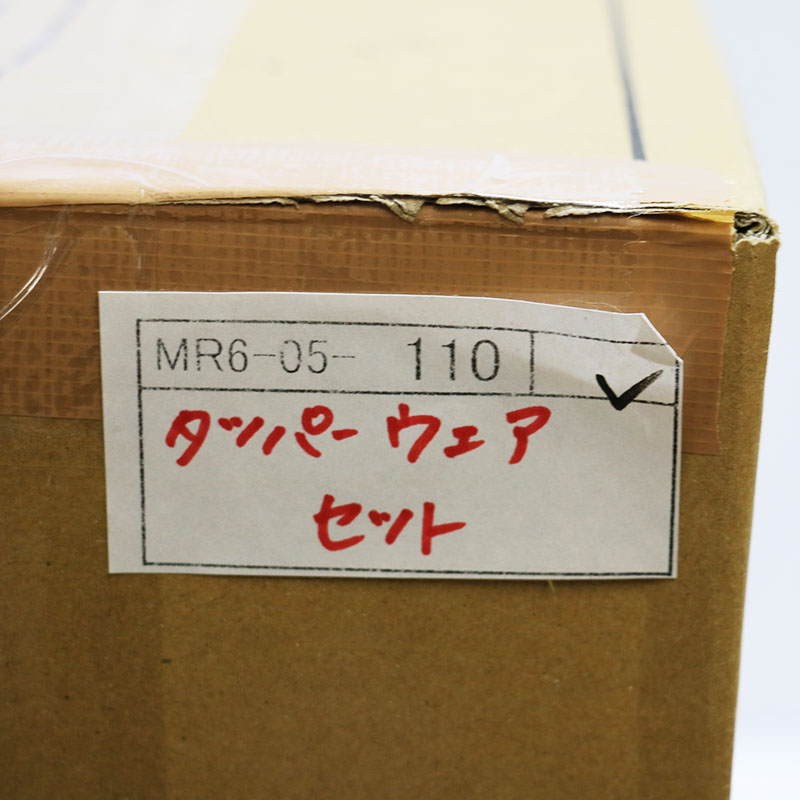 MR6-05- 110
タッパーウェア
セット